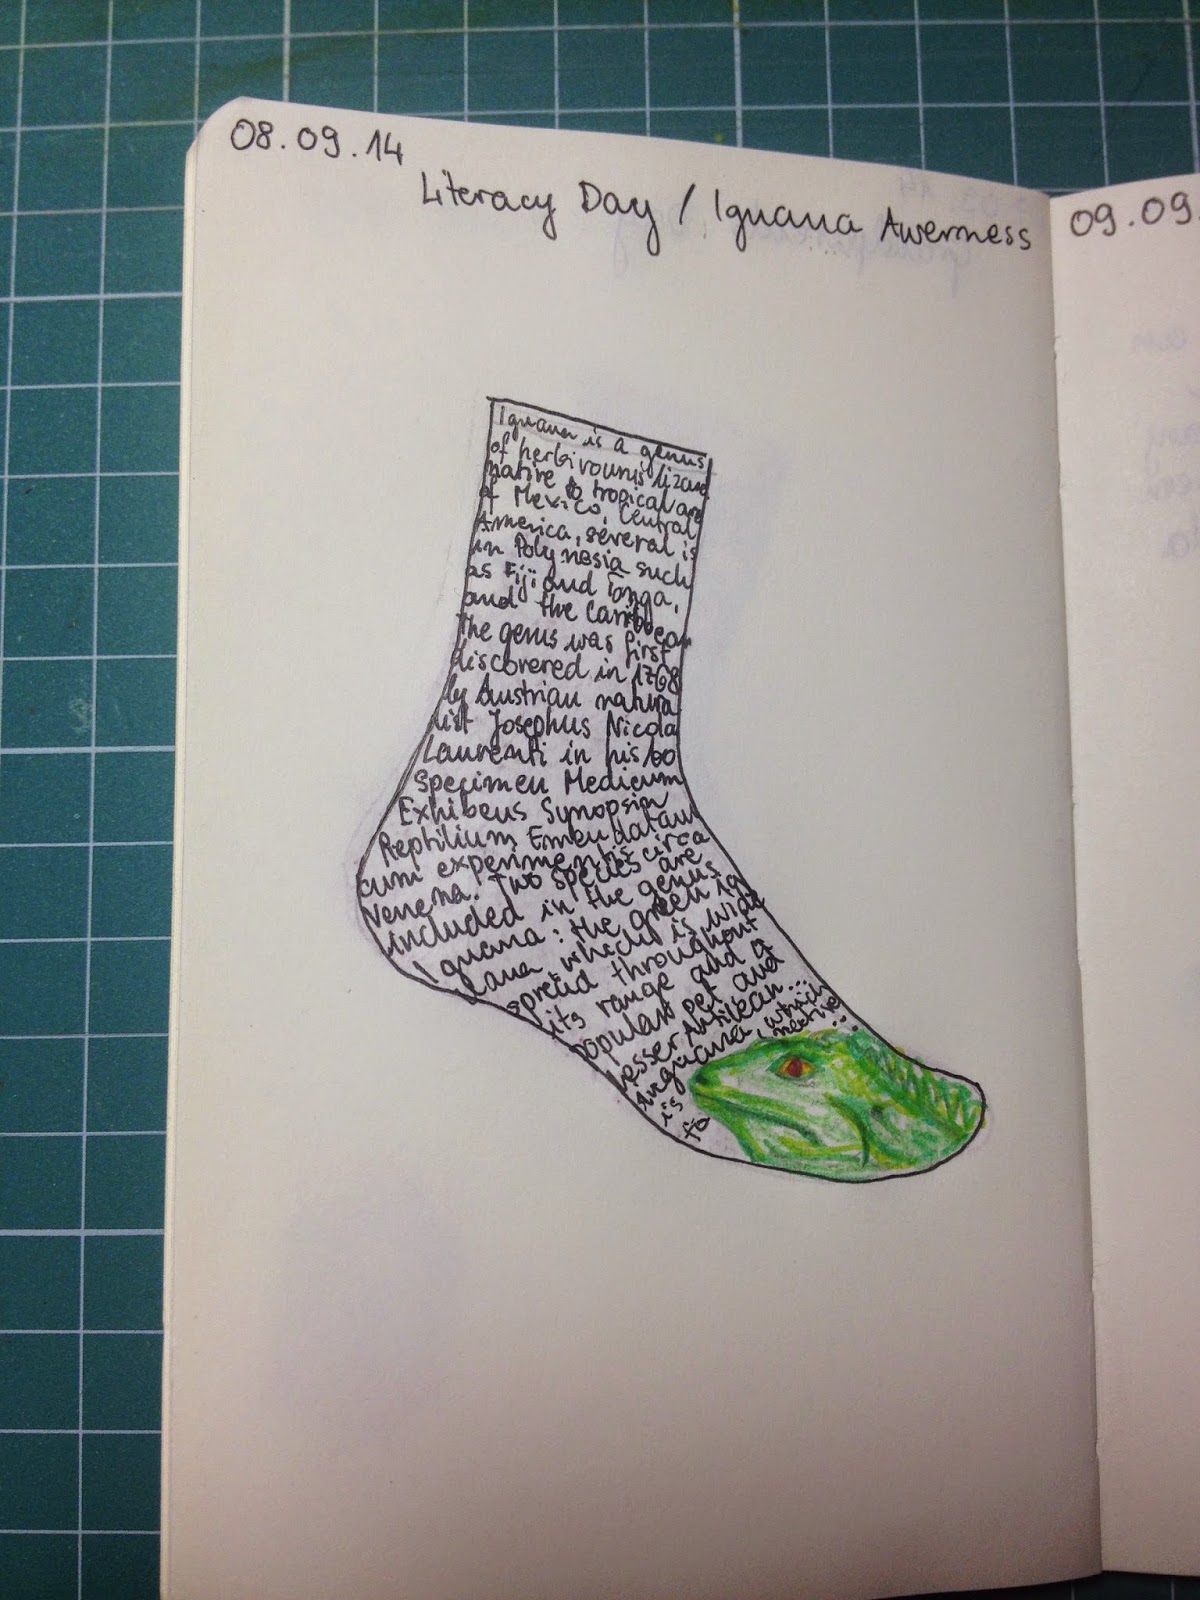 08.09.14
Literacy Day / Iguana Awerness
09.09.
Iguana is a genus
of herbivourus lizard
native to tropical are
of Mexico, Central
America, several is
in Polynesia such
as Fiji and Tonga,
and the Caribbean
The genus was first
discovered in 1768
by Austrian natura
list Josephus Nicola
Laurenti in his bo
Specimen Medicum
Exhibens Synopsin
Reptilium Emendatam
cum experimentis circa
Venena. Two species are
included in the genus
Iguana: the green ig
uana which is wide
spread throughout
its range and a
popular pet and
lesser Antilean...
Inguana, which
is native...
fo